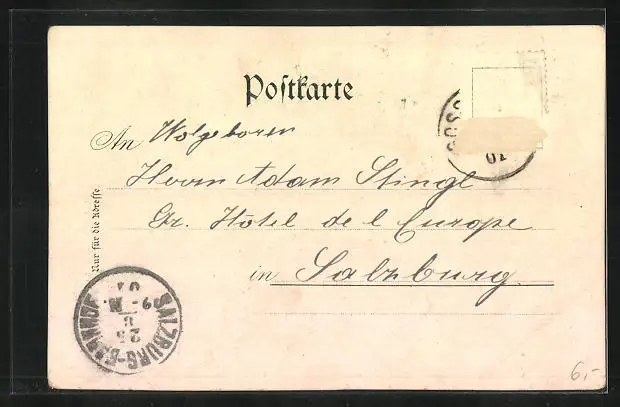 Postkarte
An Wolgeboren
Herrn Adam Stingl
Gr. Hôtel de l Europe
in Salzburg.
Nur für die Adresse
SALZBURG-BAHNHOF
25
8
9-N.
01
GOSS
01
6,-